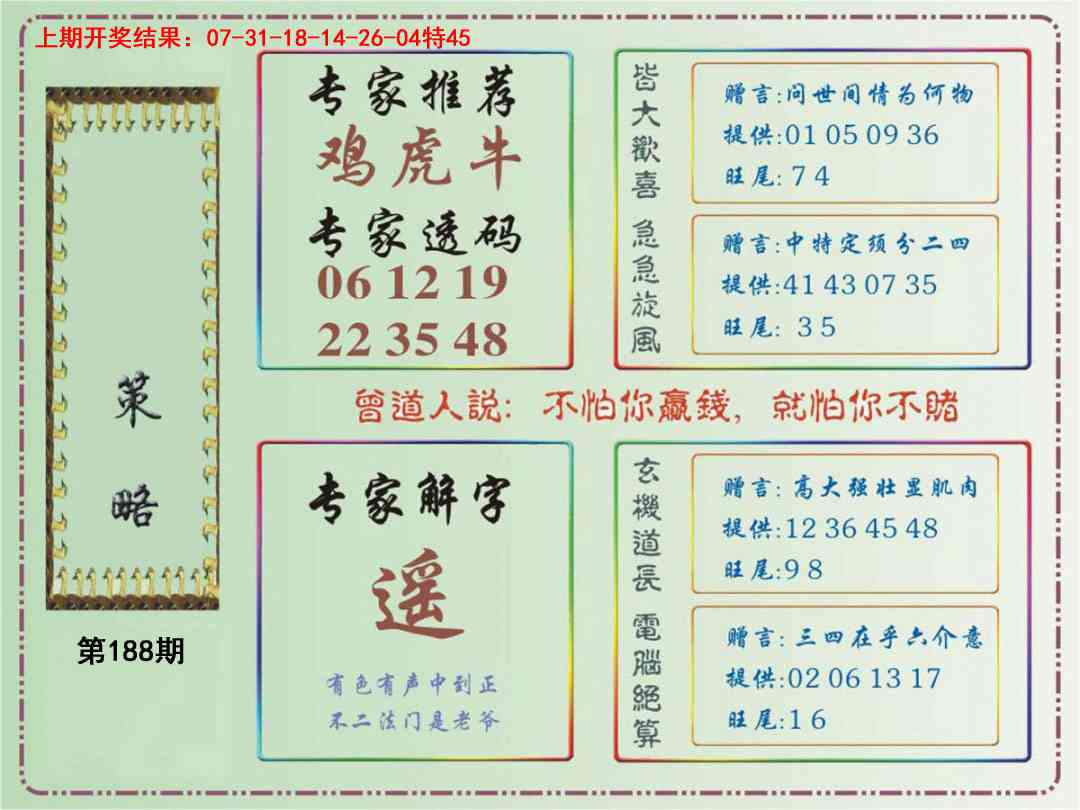 上期开奖结果：07-31-18-14-26-04特45
策略
第188期
专家推荐
鸡虎牛
专家透码
06 12 19
22 35 48
皆大歡喜
赠言:问世间情为何物
提供:01 05 09 36
旺尾: 7 4
急急旋風
赠言:中特定须分二四
提供:41 43 07 35
旺尾: 3 5
曾道人説：不怕你贏錢，就怕你不賭
专家解字
遥
有色有声中到正
不二法门是老爷
玄機道長
赠言: 高大强壮显肌肉
提供:12 36 45 48
旺尾:9 8
電腦絕算
赠言: 三四在乎六介意
提供:02 06 13 17
旺尾:1 6